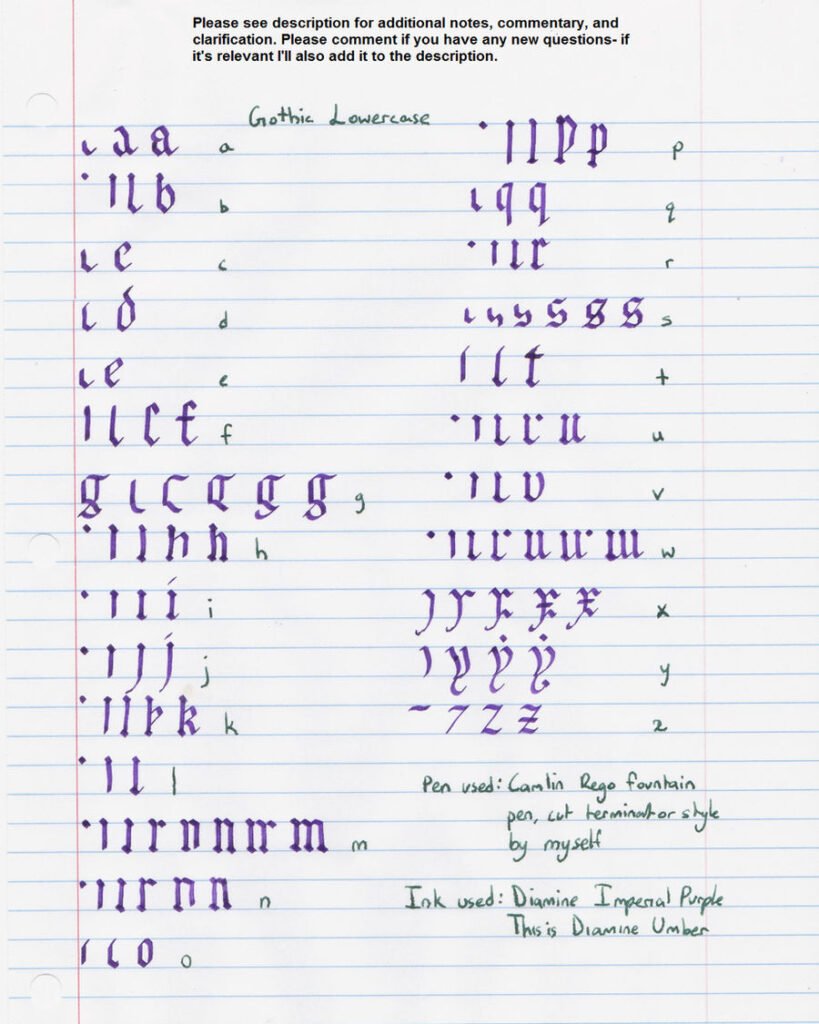 Please see description for additional notes, commentary, and
clarification. Please comment if you have any new questions- if
it's relevant I'll also add it to the description.
Gothic Lowercase
a a a
b b
c c
d d
e e
f f
g g g
h h
i i
j j
k k
l l
m m
n n
o o
p p
q q
r r
s s s
t t
u u
v v
w w
x x
y y
z z
Pen used: Camlin Rego fountain
pen, cut terminator style
by myself
Ink used: Diamine Imperial Purple
This is Diamine Umber